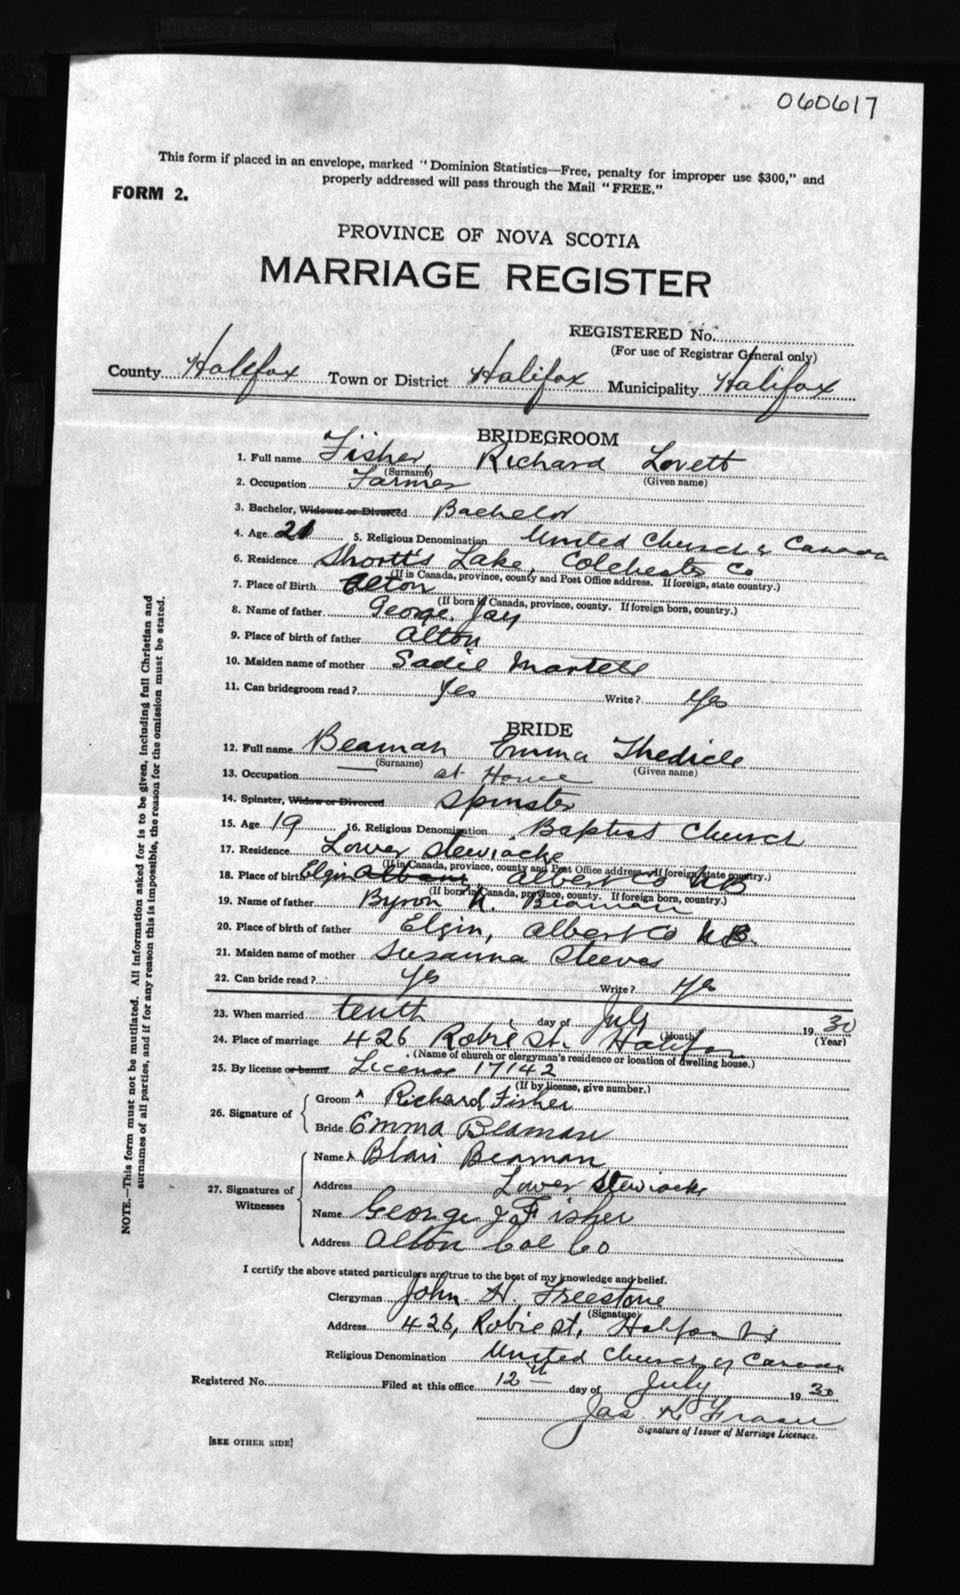 060617
This form if placed in an envelope, marked "Dominion Statistics—Free, penalty for improper use $300," and
properly addressed will pass through the Mail "FREE."
FORM 2.
PROVINCE OF NOVA SCOTIA
MARRIAGE REGISTER
REGISTERED No.
(For use of Registrar General only)
County Halifax Town or District Halifax Municipality Halifax
BRIDEGROOM
1. Full name Fisher, Richard Lovett
(Surname) (Given name)
2. Occupation Farmer
3. Bachelor, Widower or Divorced Bachelor
4. Age 21 5. Religious Denomination United Church of Canada
6. Residence Shortt's Lake, Colchester Co
(If in Canada, province, county and Post Office address. If foreign, state country.)
7. Place of Birth Alton
(If born in Canada, province, county. If foreign born, country.)
8. Name of father George Jay
9. Place of birth of father Alton
10. Maiden name of mother Sadie Martell
11. Can bridegroom read? Yes Write? Yes
BRIDE
12. Full name Beaman Emma Thedicle
(Surname) (Given name)
13. Occupation at Home
14. Spinster, Widow or Divorced Spinster
15. Age 19 16. Religious Denomination Baptist Church
17. Residence Lower Stewiacke
(If in Canada, province, county and Post Office address. If foreign, state country.)
18. Place of birth Elgin Albany Albert Co NB
(If born in Canada, province, county. If foreign born, country.)
19. Name of father Byron N. Beaman
20. Place of birth of father Elgin, Albert Co N.B.
21. Maiden name of mother Susanna Steeves
22. Can bride read? Yes Write? Yes
23. When married tenth day of July 1930
(Month) (Year)
24. Place of marriage 426 Robie St. Halifax
(Name of church or clergyman's residence or location of dwelling house.)
25. By license or banns License 17142
(If by license, give number.)
26. Signature of Groom x Richard Fisher
Bride Emma Beaman
27. Signatures of Witnesses
Name x Blair Beaman
Address Lower Stewiacke
Name George J Fisher
Address Alton Col Co
I certify the above stated particulars are true to the best of my knowledge and belief.
Clergyman John H. Freestone
(Signature)
Address 426, Robie St, Halifax NS
Religious Denomination United Church of Canada
Registered No. Filed at this office 12th day of July 1930
Jas K Fraser
Signature of Issuer of Marriage Licenses.
[SEE OTHER SIDE]
NOTE.—This form must not be mutilated. All information asked for is to be given, including full Christian and
surnames of all parties, and if for any reason this is impossible, the reason for the omission must be stated.